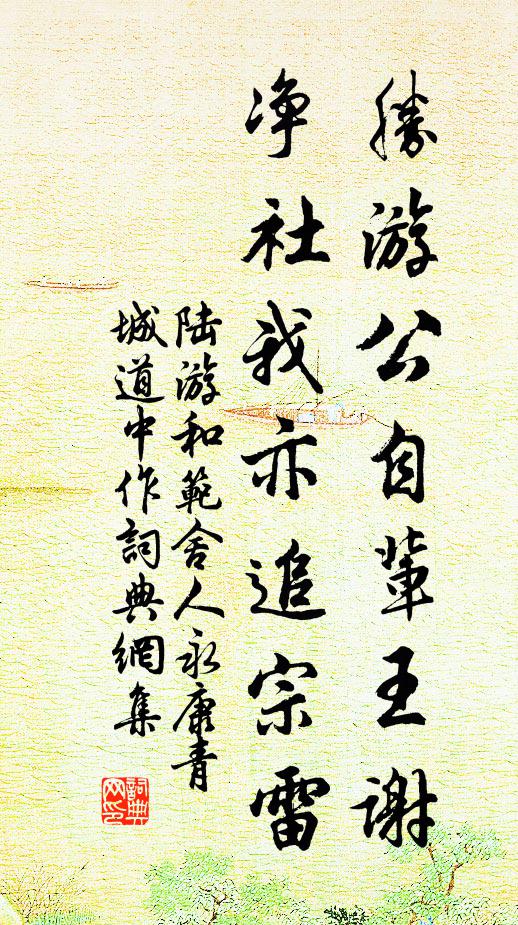 勝游公自輩王謝
净社我亦追宗雷
陆游和範舍人永康青
城道中作詞典網集
詞典
网印